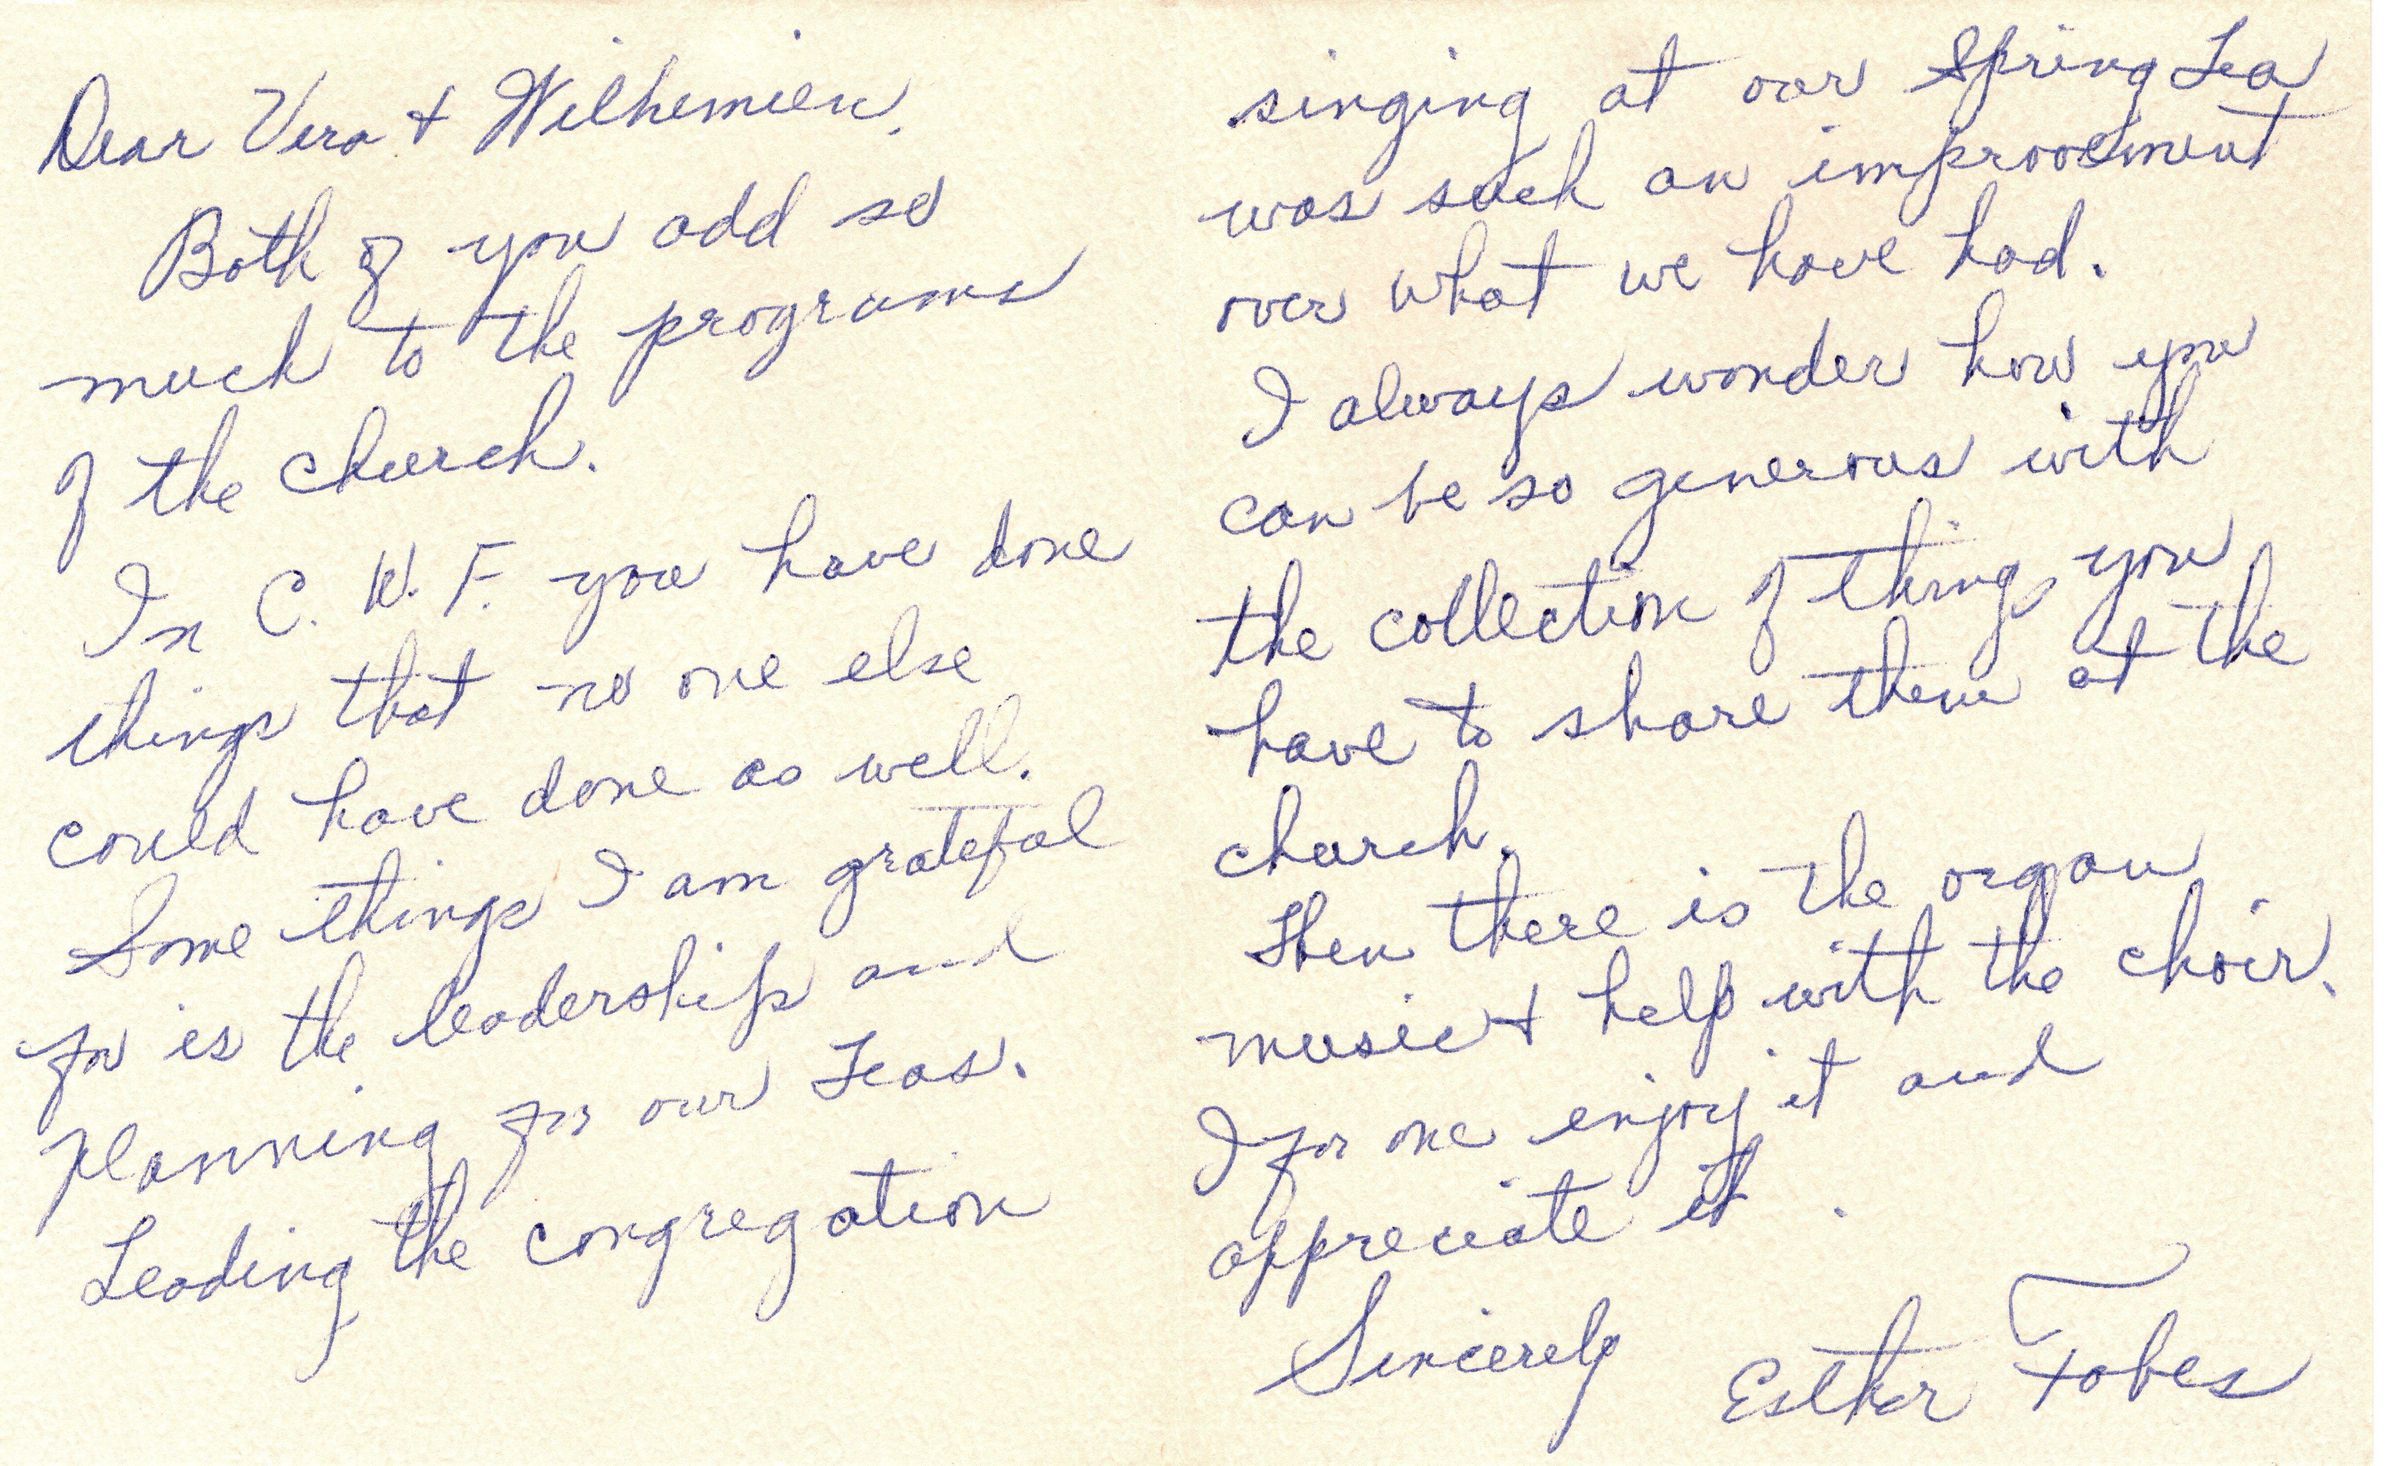 Dear Vera + Wilhemien,
Both of you add so
much to the programs
of the church.
In C. W. F. you have done
things that no one else
could have done as well.
Some things I am grateful
for is the leadership and
planning for our Teas.
Leading the congregation
singing at our Spring Tea
was such an improvement
over what we have had.
I always wonder how you
can be so generous with
the collection of things you
have to share them at the
church.
Then there is the organ
music + help with the choir.
I for one enjoy it and
appreciate it.
Sincerely
Esther Fobes